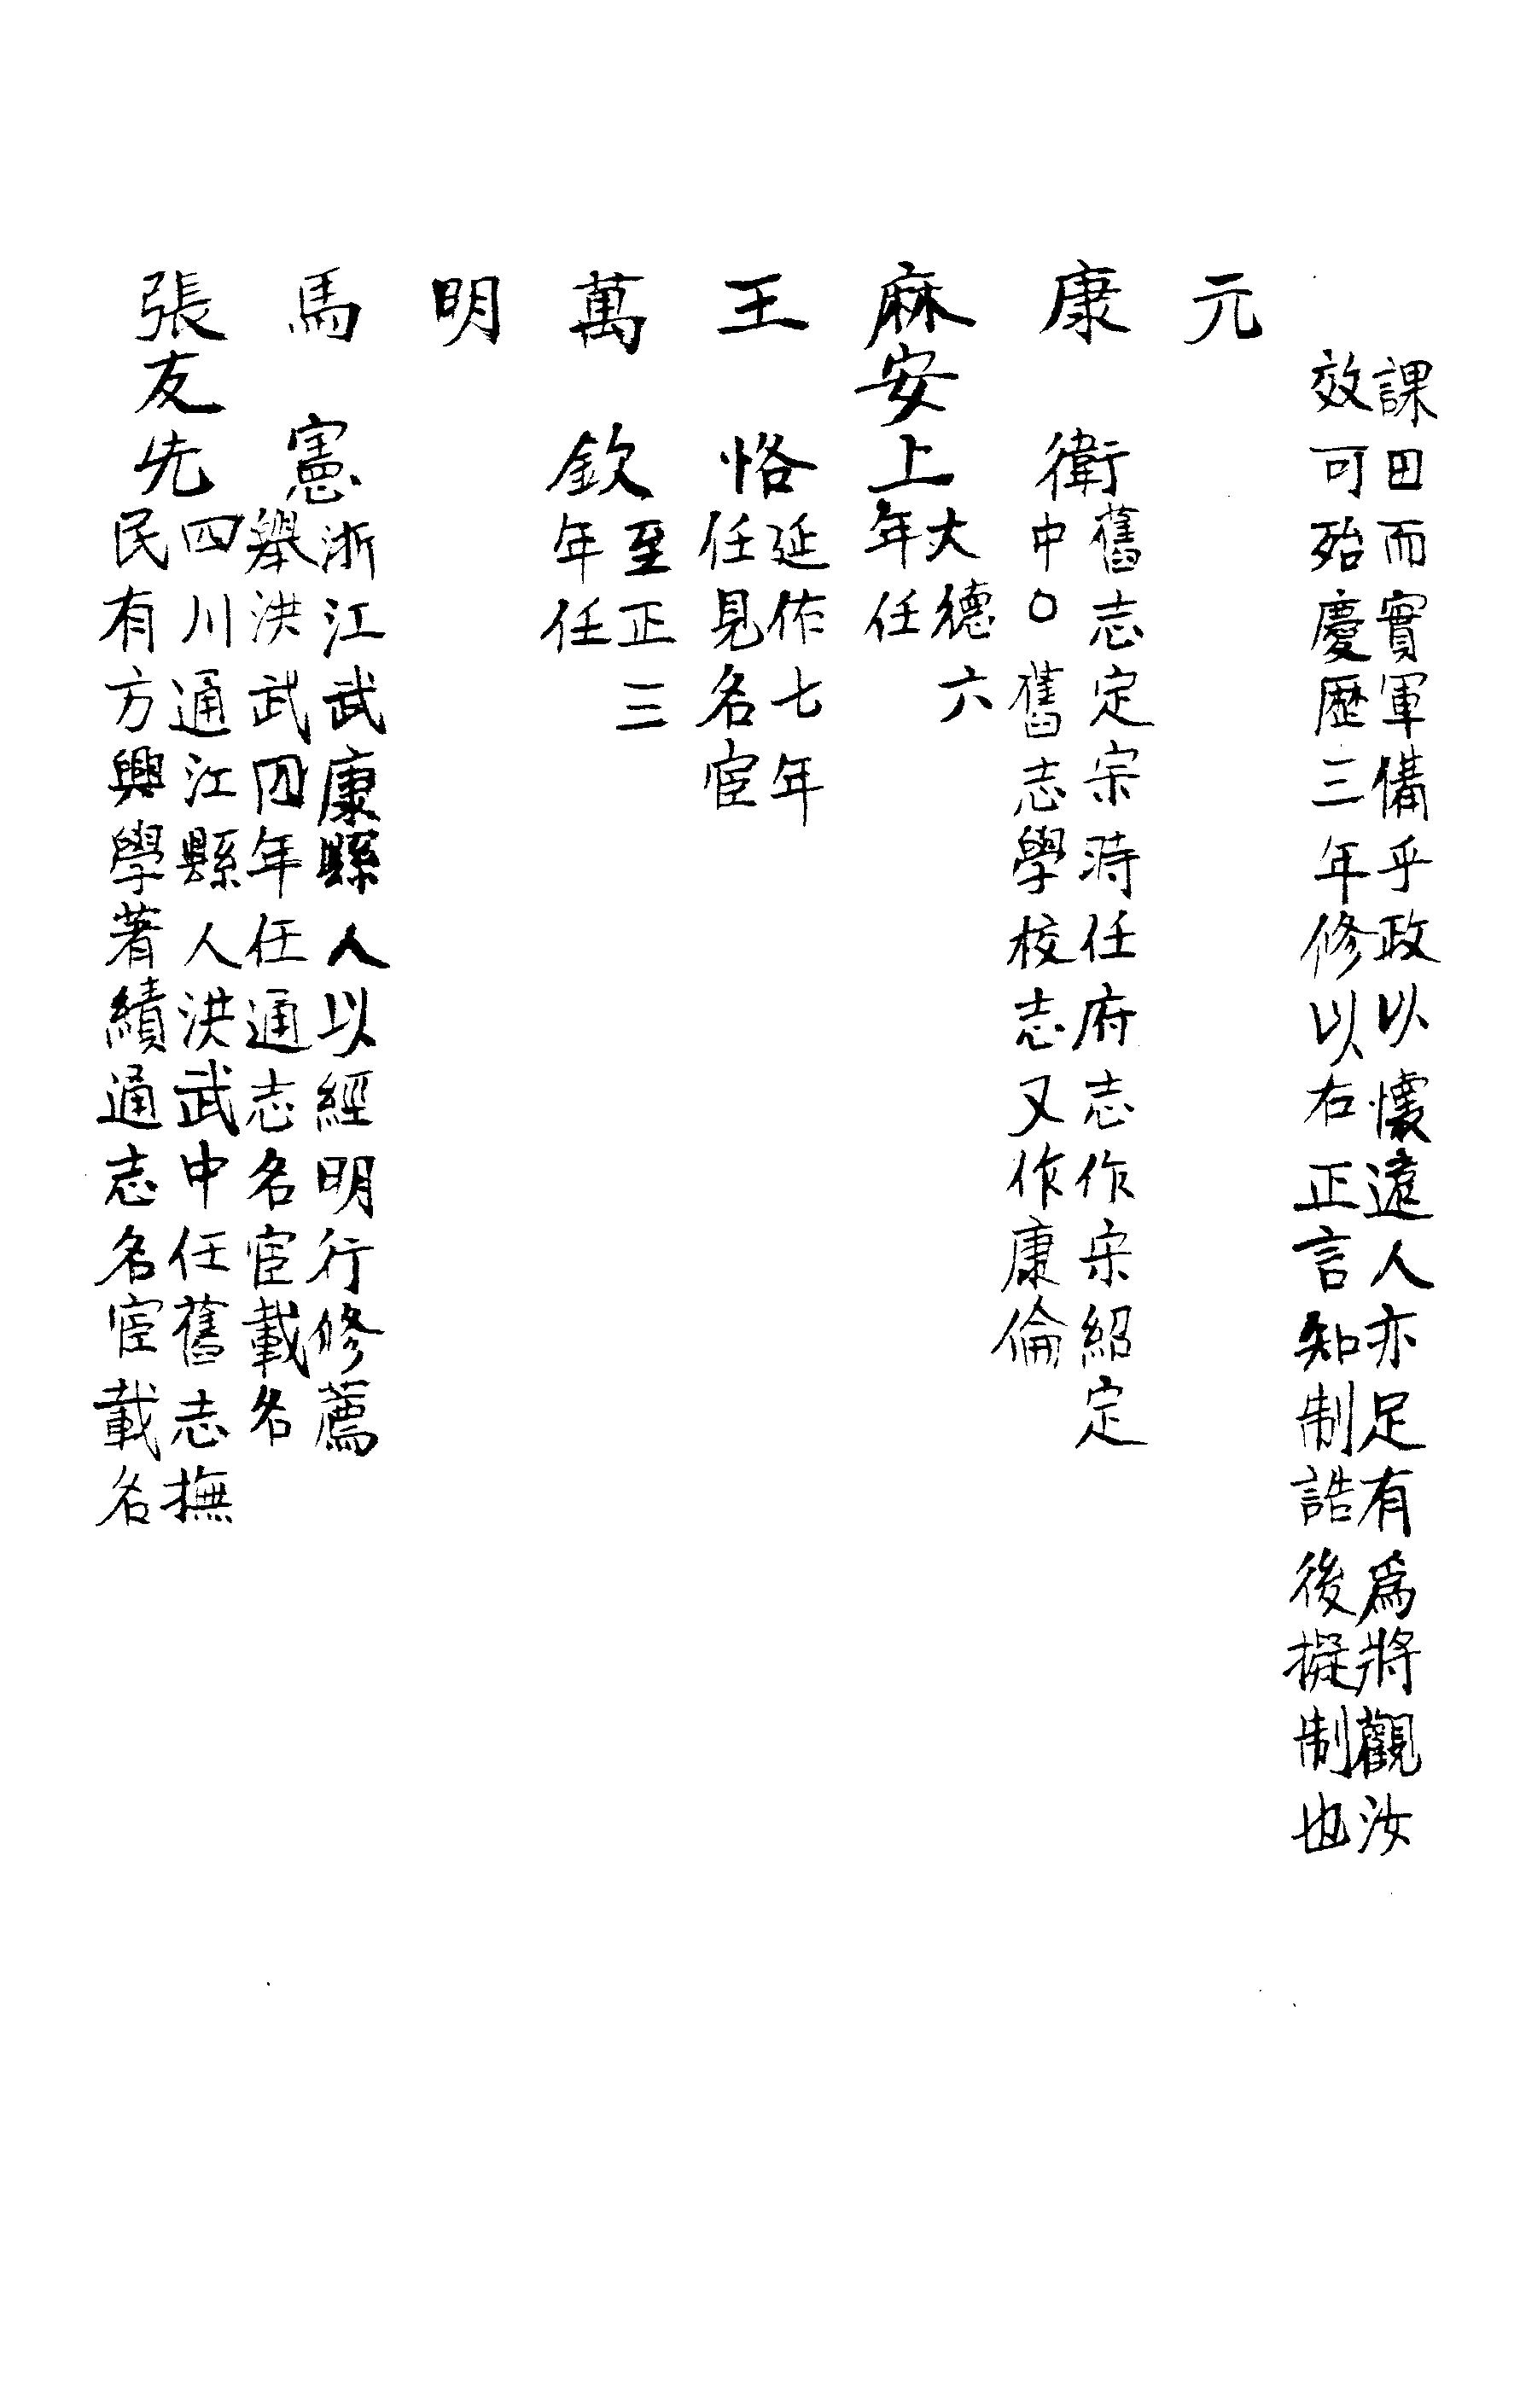 課田而實軍備乎政以懷遠人亦足有爲將觀汝
效可殆慶歷三年修以右正言知制誥後擬制也
元
康　衛
舊志定宗時任府志作宋紹定
中○舊志學校志又作康倫
麻安上
大德六
年任
王　恪
延佑七年
任見名宦
萬　欽
至正三
年任
明
馬　憲
浙江武康縣人以經明行修薦
舉洪武四年任通志名宦載名
張友先
四川通江縣人洪武中任舊志撫
民有方興學著績通志名宦載名